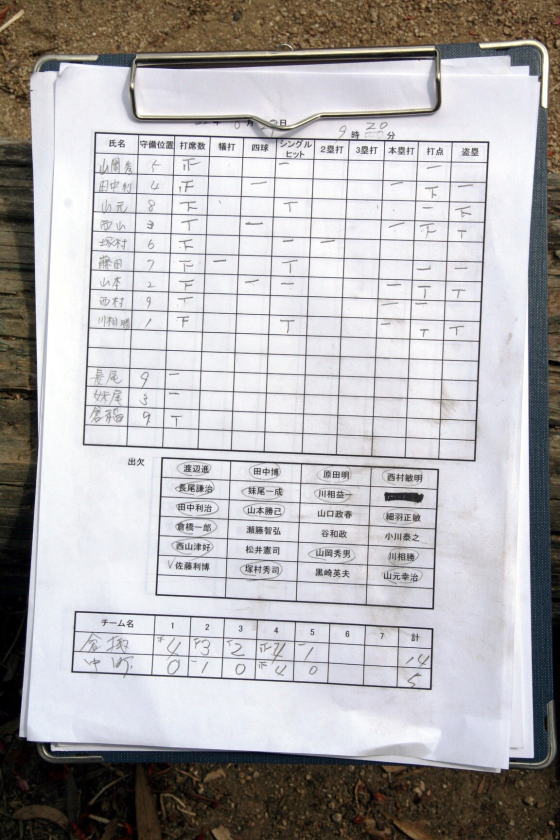 日
9 時 20 分
氏名 守備位置 打席数 犠打 四球 シングルヒット 2塁打 3塁打 本塁打 打点 盗塁
山岡秀 5 正 一 一
田中利 4 正 一 一 下 一
山元 8 下 T 一 下
西山 3 T 一 一 下 T
塚村 6 下 一 一
藤田 7 下 一 T 一 一
山本 2 下 一 一 一 T T
西村 9 T 一 一
川相勝 1 下 T 一 T T
長尾 9 一
妹尾 3 一
倉橋 9 T
出欠
渡辺進 田中博 原田明 西村敏明
長尾謙治 妹尾一成 川相益一
田中利治 山本勝己 山口政春 細羽正敏
倉橋一郎 瀬藤智弘 谷和政 小川泰之
西山津好 松井憲司 山岡秀男 川相勝
V 佐藤利博 塚村秀司 黒崎英夫 山元幸治
チーム名 1 2 3 4 5 6 7 計
4 3 2 4 1 14
中町 0 1 0 4 0 5